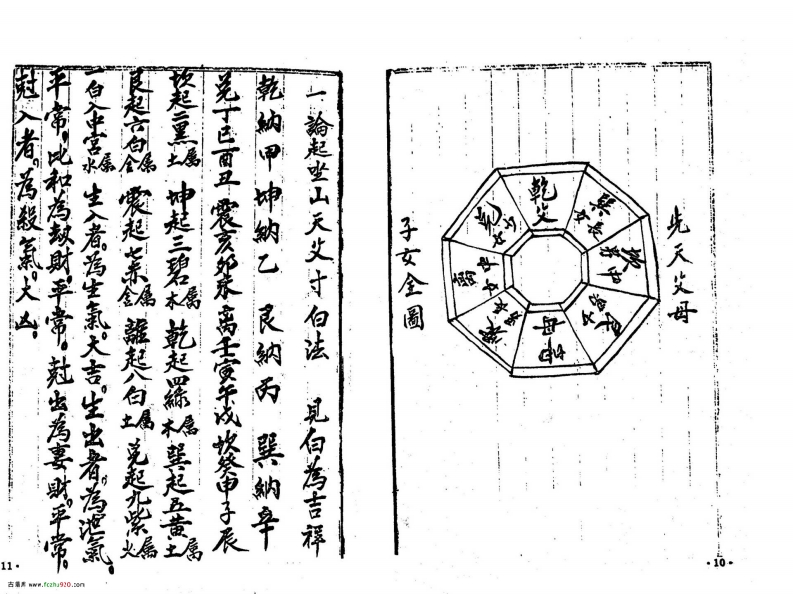 先天父母
子女全圖
乾父
巽長女
坎中男
艮少男
坤母
震長男
離中女
兌少女
·10·
一論起坐山天父寸白法 見白為吉祥
乾納甲坤納乙 艮納丙 巽納辛
兌丁巳酉丑 震亥卯未 离壬寅午戌 坎癸申子辰
坎起二黑属土 坤起三碧属木 乾起四綠属木 巽起五黃属土
艮起六白属金 震起七赤属金 離起八白属土 兌起九紫属火
一白入中宮属水 生入者。為生氣。大吉。生出者。為洩氣。
平常。比和為刼財。平常。尅出為妻財。平常。
尅入者。為殺氣。大凶。
11·
古易库 www.fczhu920.com